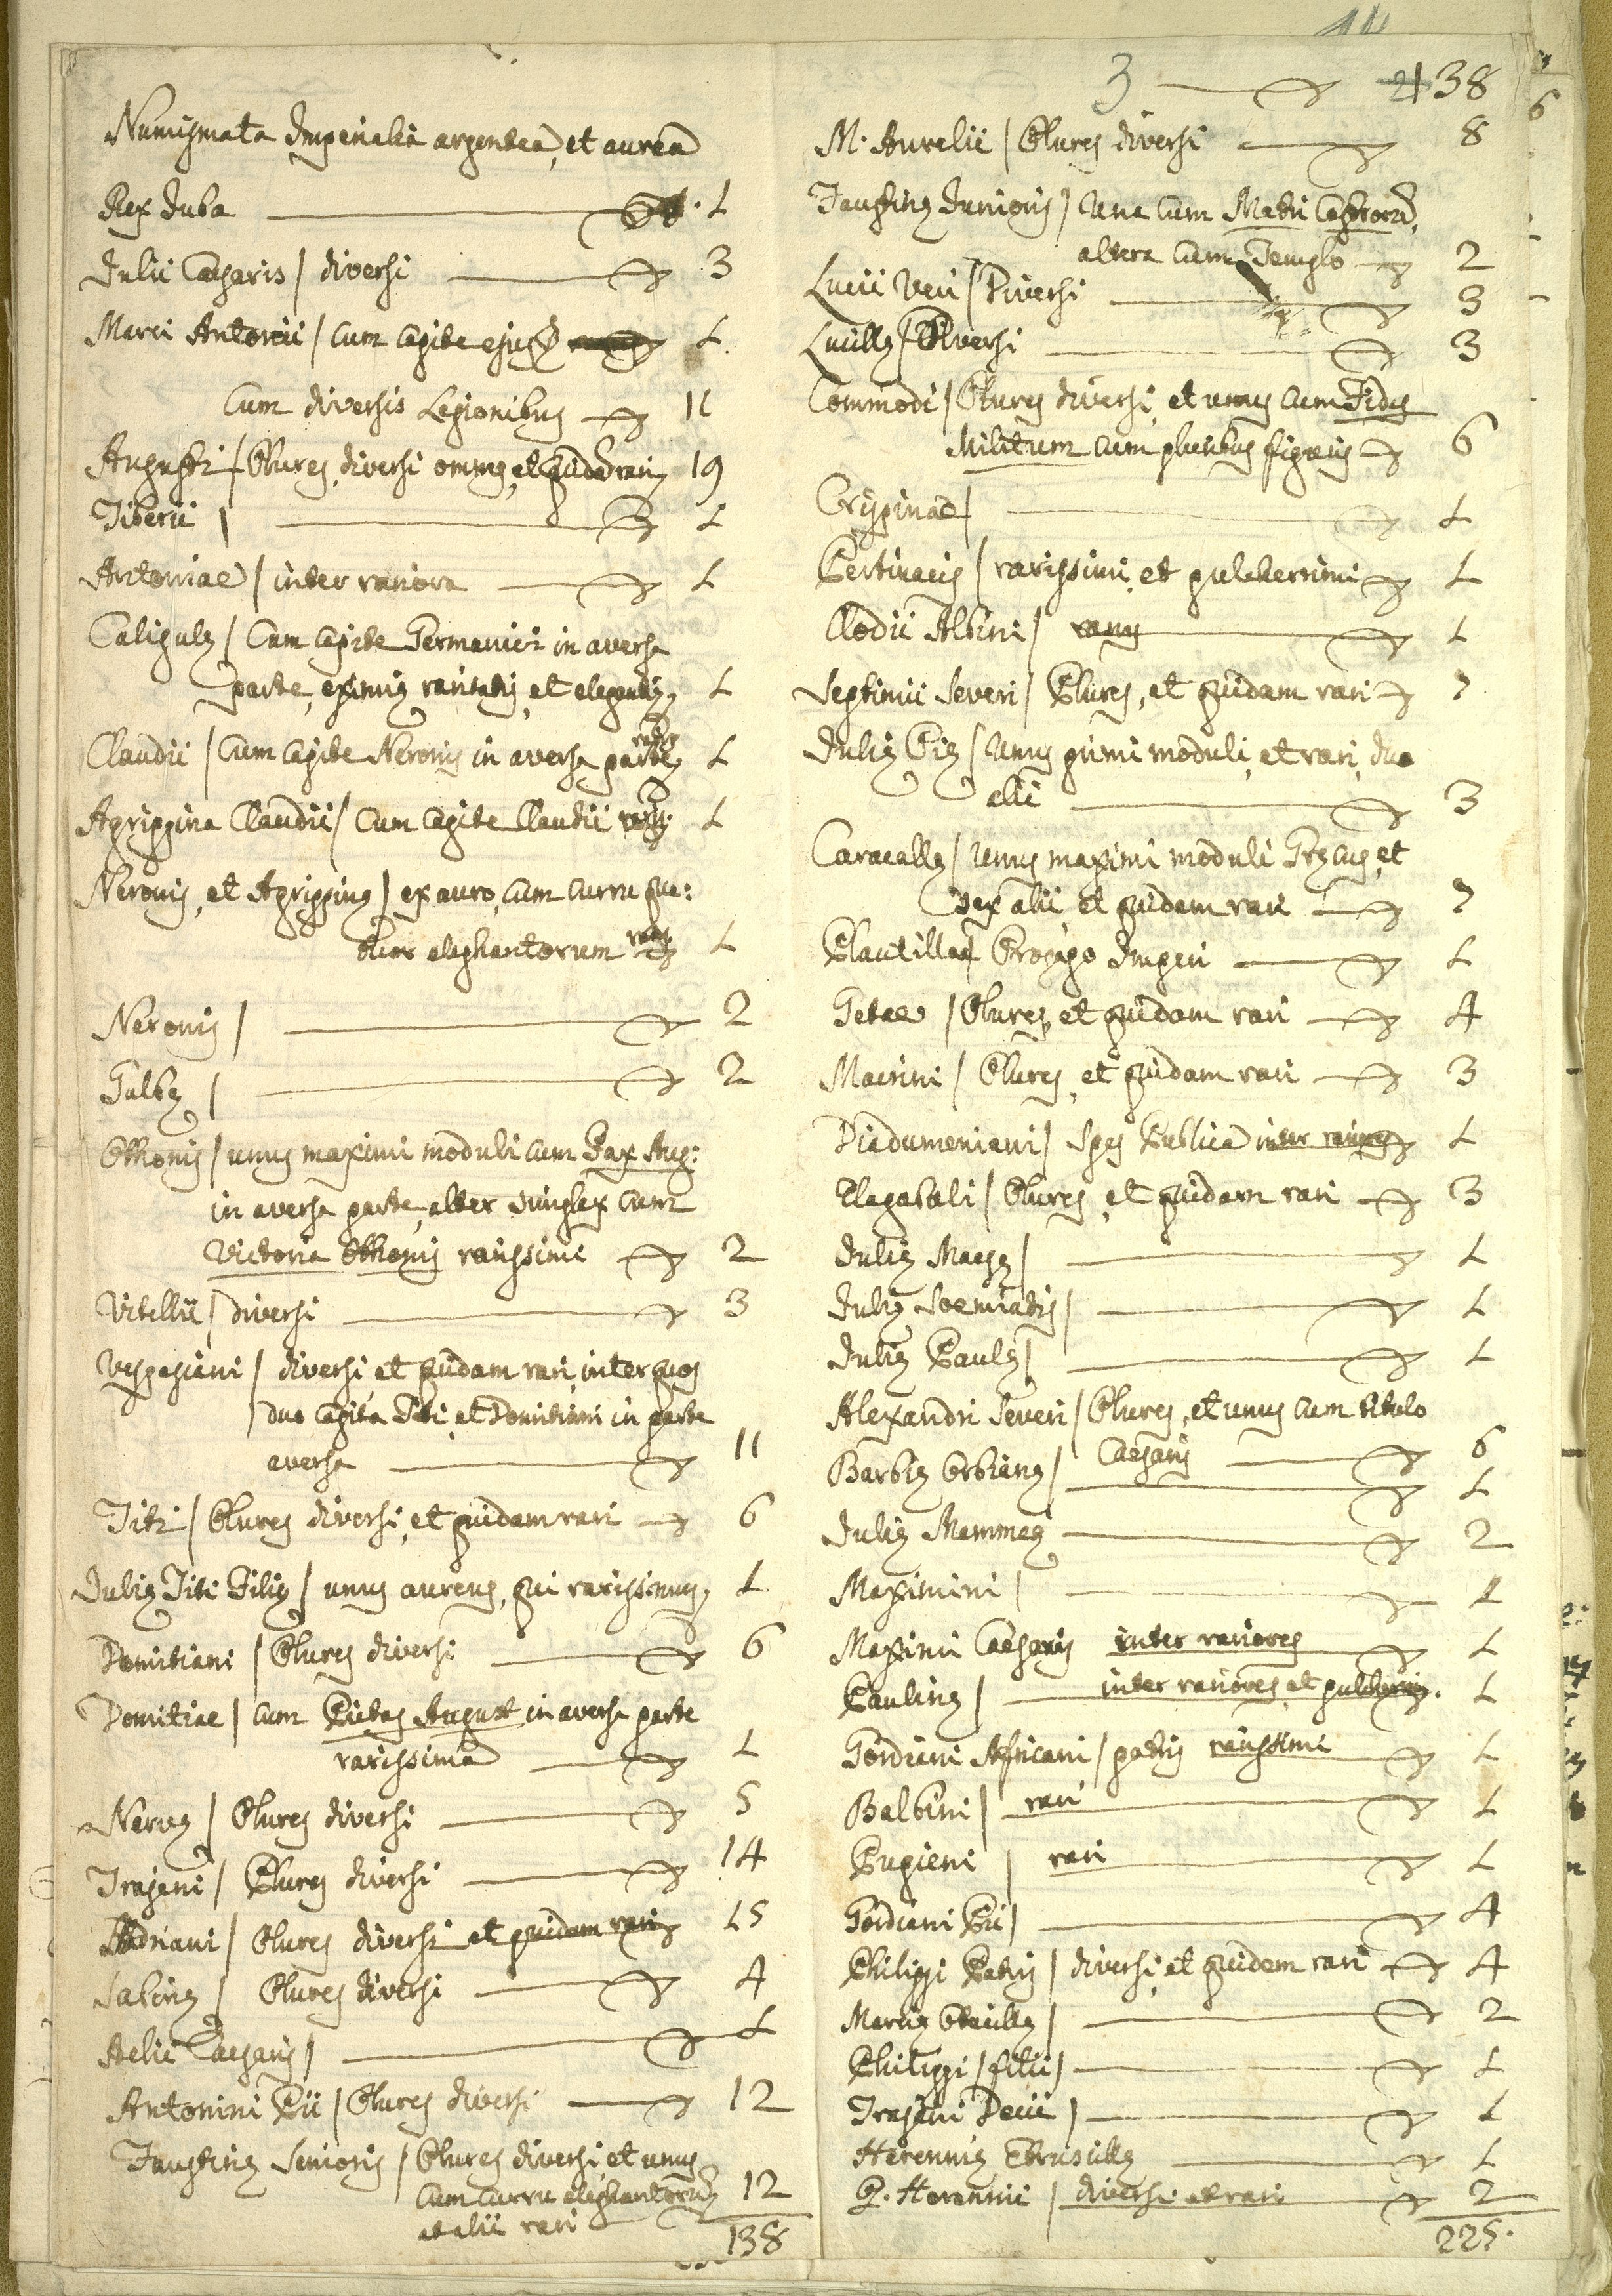 Numismata Imperialia argentea, et aurea
Rex Juba 1
Julii Caesaris / diversi 3
Marci Antonii / cum capite ejus 1
cum diversis Legionibus 11
Augusti / Plures, diversi omnes, et quidam rari 19
Tiberii / 1
Antoniae / inter rariora 1
Caligulę / Cum capite Germanici in aversa
parte, eximię raritatis, et elegantię 1
Claudii / Cum capite Neronis in aversa parte rarus 1
Agrippina Claudii / Cum capite Claudii rarus 1
Neronis, et Agrippinę / ex auro, cum curru qua:
tuor elephantorum rarus 1
Neronis / 2
Galbę / 2
Othonis / unus maximi moduli cum Pax Aug:
in aversa parte, alter simplex cum
Victoria Othonis rarissimi 2
Vitellii / diversi 3
Vespasiani / diversi et quidam rari, inter quos
duo capita Titi, et Domitiani in parte
aversa 11
Titi / Plures diversi, et quidam rari 6
Julię Titi Filię / unus aureus, qui rarissimus 1
Domitiani / Plures diversi 6
Domitiae / cum Pietas August in aversa parte
rarissima 1
Nervę / Plures diversi 5
Trajani / Plures diversi 14
Adriani / Plures diversi et quidam rari 15
Sabinę / Plures diversi 4
Aelii Caesaris / 1
Antonini Pii / Plures diversi 12
Faustinę Senioris / Plures diversi, et unus
cum curru elephantorum 12
et alii rari
138
3 138
M. Aurelii / Plures diversi 8
Faustinę Junioris / Una cum Matri Castrorum,
altera cum Templo 2
Lucii Veri / Diversi 3
Lucillę / Diversi 3
Commodi / Plures diversi, et unus cum Fides
Militum cum pluribus figuris 6
Crispinae / 1
Pertinacis / rarissimi, et pulcherrimi 1
Clodii Albini / rarus 1
Septimii Severi / Plures, et quidam rari 7
Julię Pię / Unus primi moduli, et rari, duo
alii 3
Caracallę / Unus maximi moduli Gręcus, et
sex alii et quidam rari 7
Plautillae / Propago Imperi 1
Getae / Plures, et quidam rari 4
Macrini / Plures, et quidam rari 3
Diadumeniani / Spes Publica inter rariores 1
Elagabali / Plures, et quidam rari 3
Julię Maesę / 1
Julię Soemiadis / 1
Julię Paulę / 1
Alexandri Severi / Plures, et unus cum titulo
Caesaris 6
Barbię Orbianę / 1
Julię Mammeę 2
Maximini / 1
Maximi Caesaris inter rariores 1
Paulinę / inter rariores et pulchrior. 1
Gordiani Africani / patris rarissimi 1
Balbini / rari 1
Pupieni / rari 1
Gordiani Pii / 4
Philippi Patris / diversi, et quidem rari 4
Marcię Otacillę / 2
Philippi / filii / 1
Trajani Decii / 1
Herennię Etruscillę 1
Q. Herennii / diversi et rari 2
225.